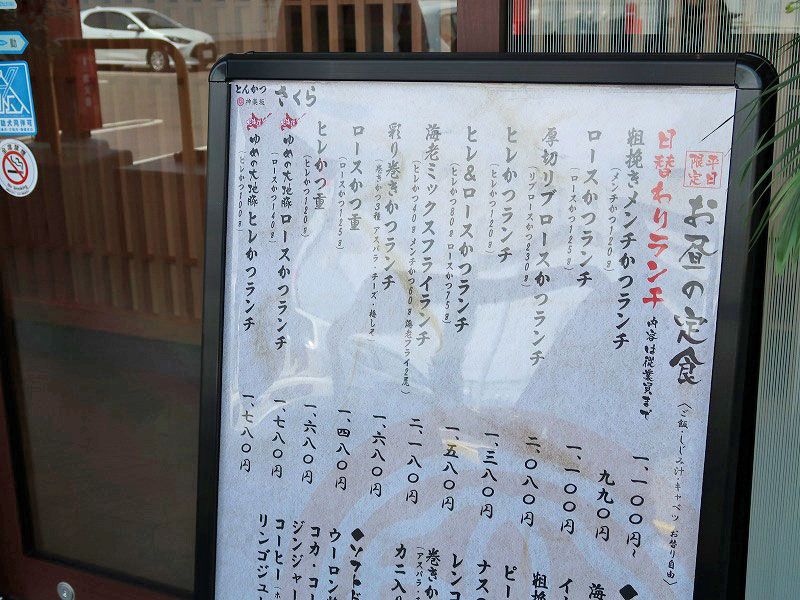 お昼の定食
〈ご飯・しじみ汁・キャベツ お替り自由〉
平日
限定
日替わりランチ
内容は従業員まで
一、一〇〇円〜
粗挽きメンチかつランチ
(メンチかつ120g)
九九〇円
ロースかつランチ
(ロースかつ125g)
一、一〇〇円
厚切リブロースかつランチ
(リブロースかつ230g)
二、〇八〇円
ヒレかつランチ
(ヒレかつ120g)
一、三八〇円
ヒレ&ロースかつランチ
(ヒレかつ80g ロースかつ75g)
一、五八〇円
海老ミックスフライランチ
(ヒレかつ40g メンチかつ60g 海老フライ2尾)
二、一八〇円
彩り巻きかつランチ
(巻きかつ3種 アスパラ チーズ・梅しそ)
一、六八〇円
ロースかつ重
(ロースかつ125g)
一、四八〇円
ヒレかつ重
(ヒレかつ120g)
一、六八〇円
ゆめの大地豚 ロースかつランチ
(ロースかつ140g)
一、七八〇円
ゆめの大地豚 ヒレかつランチ
(ヒレかつ100g)
一、七八〇円
とんかつ
神楽坂
さくら
海
イ
粗挽
ピー
ナスの
レンコ
巻きか
(アスパラ・
カニ入
◆ソフトド
ウーロン
コカ・コー
ジンジャー
コーヒー(ホ
リンゴジュー